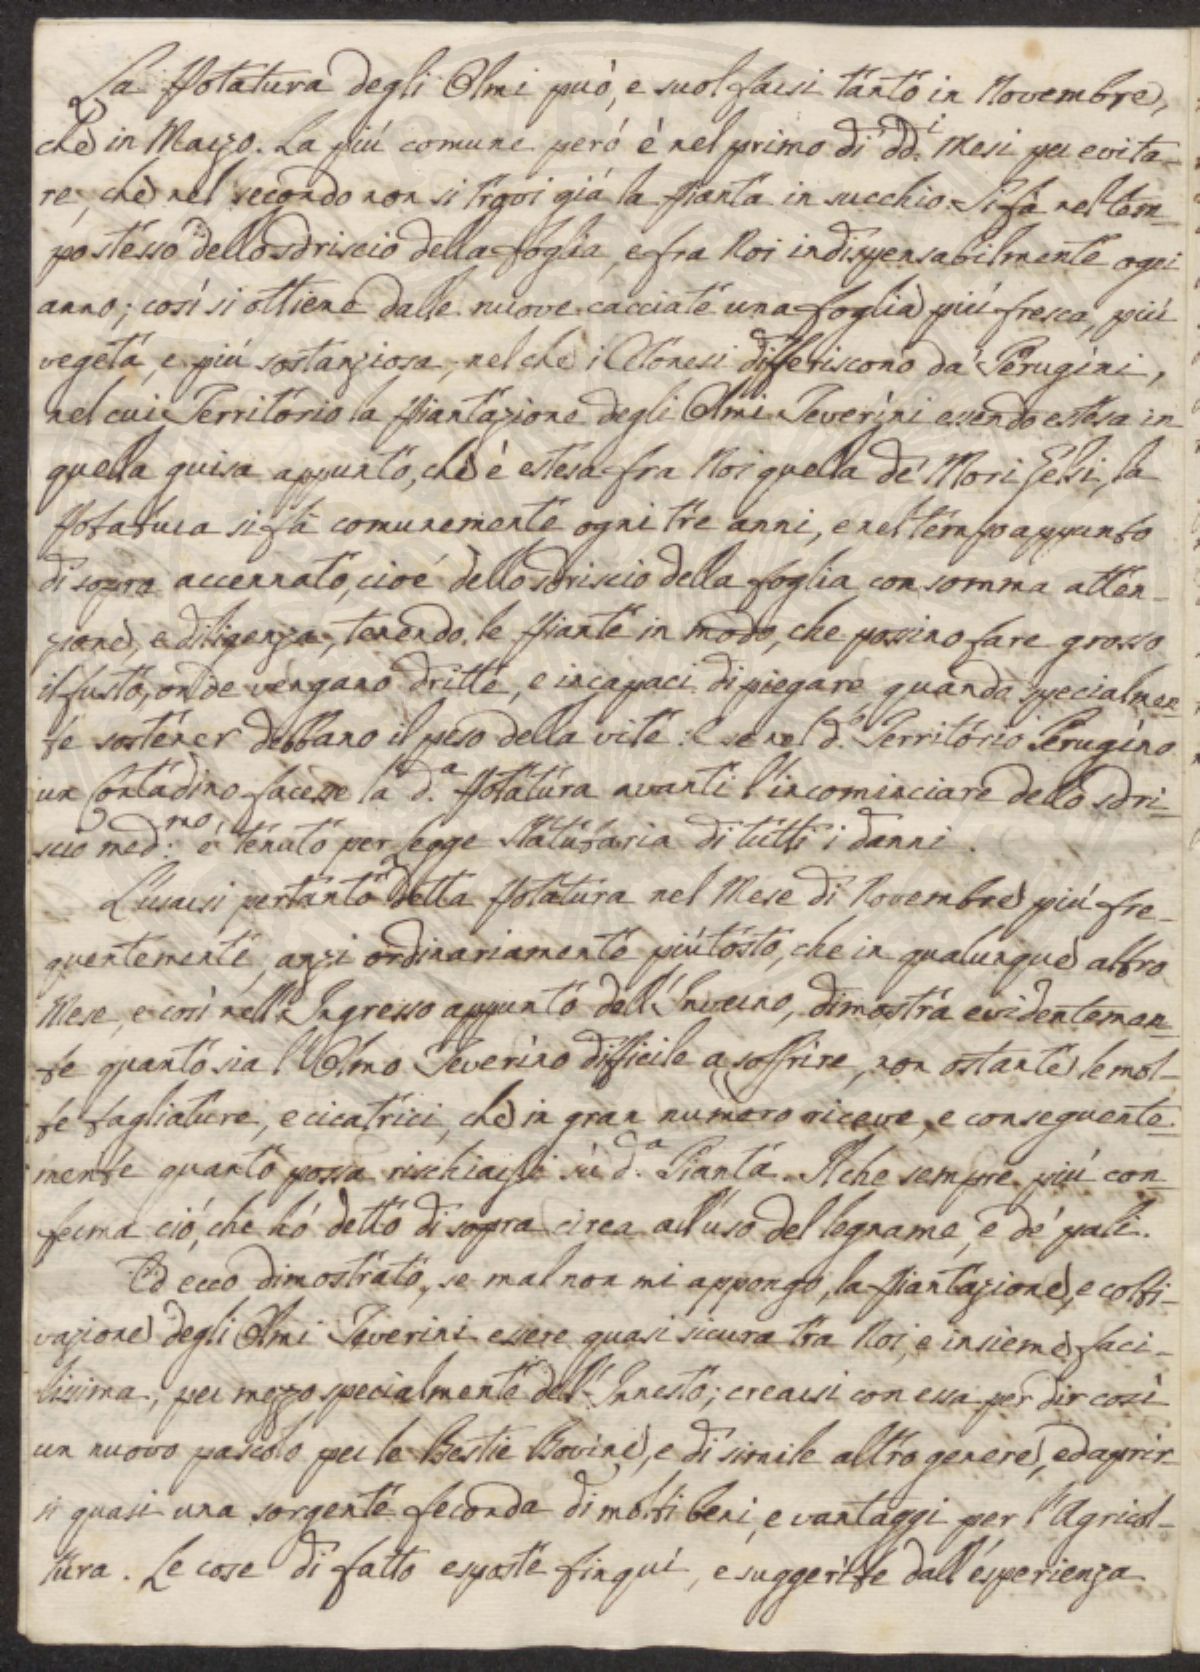 La Potatura degli Olmi può, e suol farsi tanto in Novembre,
che in Marzo. La più comune però è nel primo di dd.i Mesi per evita-
re, che nel secondo non si trovi già la Pianta in succhio. Si fà nel tem-
po stesso dello sdriscio della foglia, e fra Noi indispensabilmente ogni
anno; così si ottiene dalle nuove cacciate una foglia più fresca, più
vegeta, e più sostanziosa, nel che i differiscono da' Perugini,
nel cui Territorio la Piantazione degli Olmi Teverini essendo estesa in
quella guisa appunto, che è estesa fra Noi quella de' Mori Gelsi, la
Potatura si fà comunemente ogni tre anni, e nel tempo appunto
di sopra accennato, cioè dello sdriscio della foglia con somma atten-
zione, e diligenza, tenendo le Piante in modo, che possino fare grosso
il fusto, onde vengano dritte, e incapaci di piegare quando specialmen-
te sostener debbano il peso della vite. E se nel d.o Territorio Perugino
un Contadino facesse la d.a Potatura avanti l'incominciare dello sdri-
scio med:mo, è tenuto per legge Statutaria di tutti i danni.
L'usarsi pertanto detta Potatura nel Mese di Novembre più fre-
quentemente, anzi ordinariamente piùtosto, che in qualunque altro
Mese, e così nell'Ingresso appunto dell'Inverno, dimostra evidentemen-
te quanto sia l'Olmo Teverino difficile a soffrire, non ostante le mol-
te tagliature, e cicatrici, che in gran numero riceve, e conseguente-
mente quanto possa rischiarsi sù d.a Pianta. Il che sempre più con-
ferma ciò, che hò detto di sopra circa all'uso del legname, e de' pali.
Ed ecco dimostrato, se mal non mi appongo, la Piantazione, e colti-
vazione degli Olmi Teverini essere quasi sicura tra Noi, e insieme faci-
lissima, per mezzo specialmente dell'Innesto; crearsi con essa per dir così
un nuovo pascolo per le Bestie Bovine, e di simile altro genere, ed aprir-
si quasi una sorgente feconda di molti beni, e vantaggi per l'Agricol-
tura. Le cose di fatto esposte finquì, e suggerite dall'esperienza